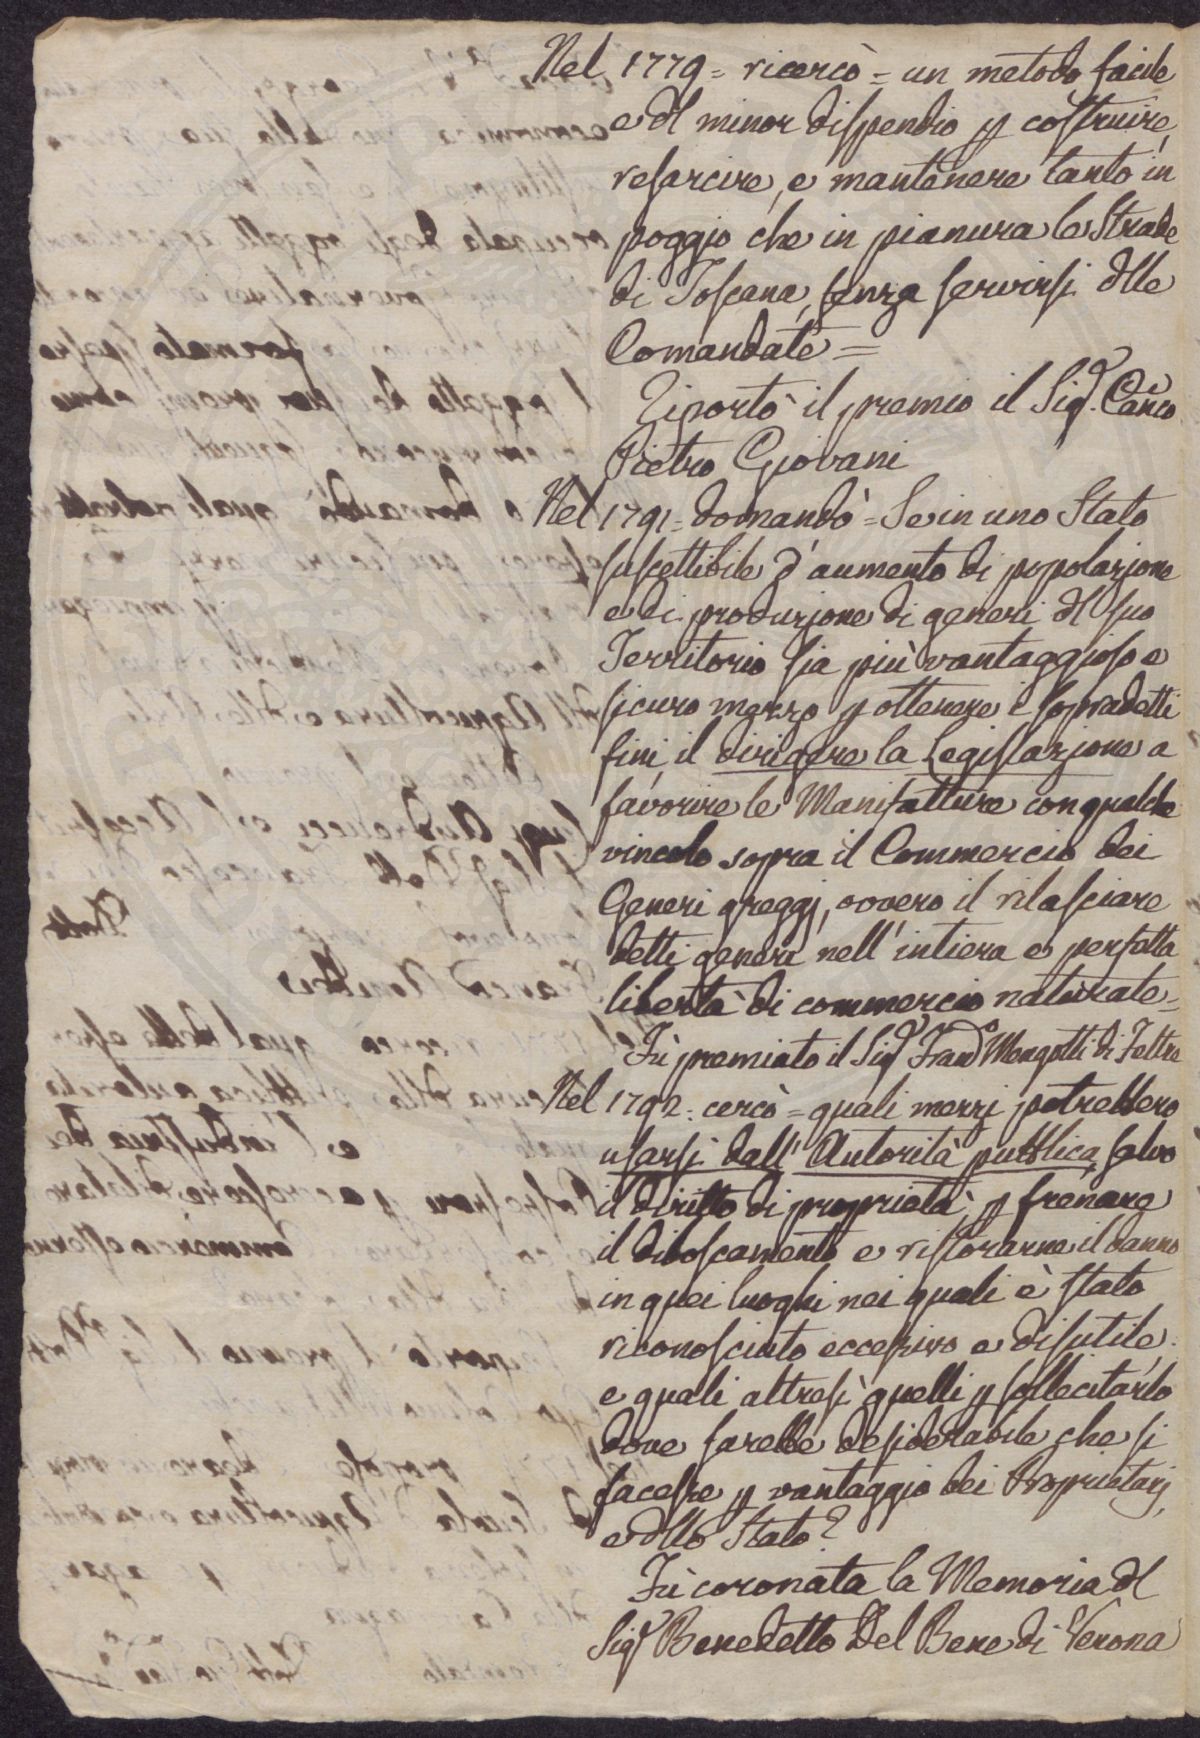 Nel 1779= ricercò = un metodo facile
e dl minor dispendio p costruire,
resarcire, e mantenere tanto in
poggio che in pianura le Strade
di Toscana, senza servirsi dlle
Comandate =
Riportò il premio il Sigr. Canco
Pietro Giovani
Nel 1791= domandò = Se in uno Stato
suscettibile d'aumento di popolazione
e di produzione di generi dl suo
Territorio sia più vantaggioso e
sicuro mezzo p ottenere i sopradetti
fini, il dirigere la Legislazione a
favorire le Manifatture con qualche
vincolo sopra il Commercio dei
Generi greggj, ovvero il rilasciare
detti generi nell'intiera e perfetta
libertà di commercio naturale=
Fù premiato il Sigr Franco Mengotti di Feltre
Nel 1792= cercò = quali mezzj potrebbero
usarsi dall'Autorità pubblica, salvo
il diritto di proprietà, p frenare
il diboscamento e ristorarne il danno
in quei luoghi nei quali è stato
riconosciuto eccessivo e disutile
e quali altresì quelli p sollecitarlo
dove sarebbe desiderabile che si
facesse p vantaggio dei Proprietarj,
e dllo Stato?
Fù coronata la Memoria dl
Sigr Benedetto Del Bene di Verona